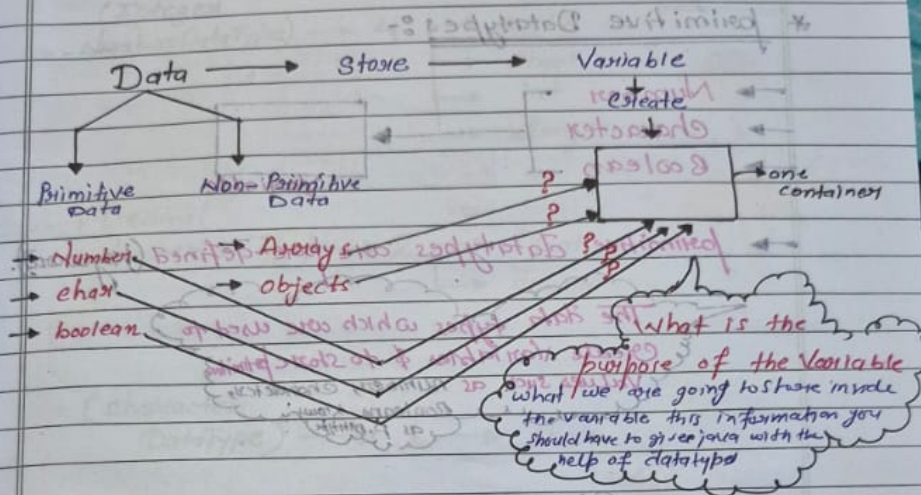 Data → Store → Variable
create
Primitive
Data
Non-Primitive
Data
one
container
→ Number
→ char
→ boolean
→ Arrays
→ objects
?
?
?
?
?
What is the
purpose of the Variable
what we are going to store inside
the variable this information you
should have to given java with the
help of datatype